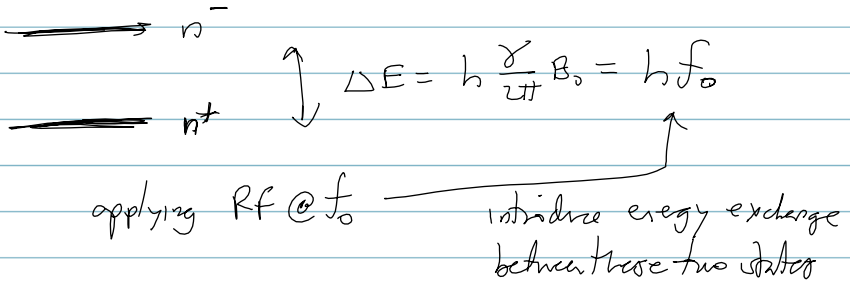 n⁻
ΔE = h γ/2π B₀ = h f₀
n⁺
applying Rf @ f₀
introduce eregy exchange
between these two states